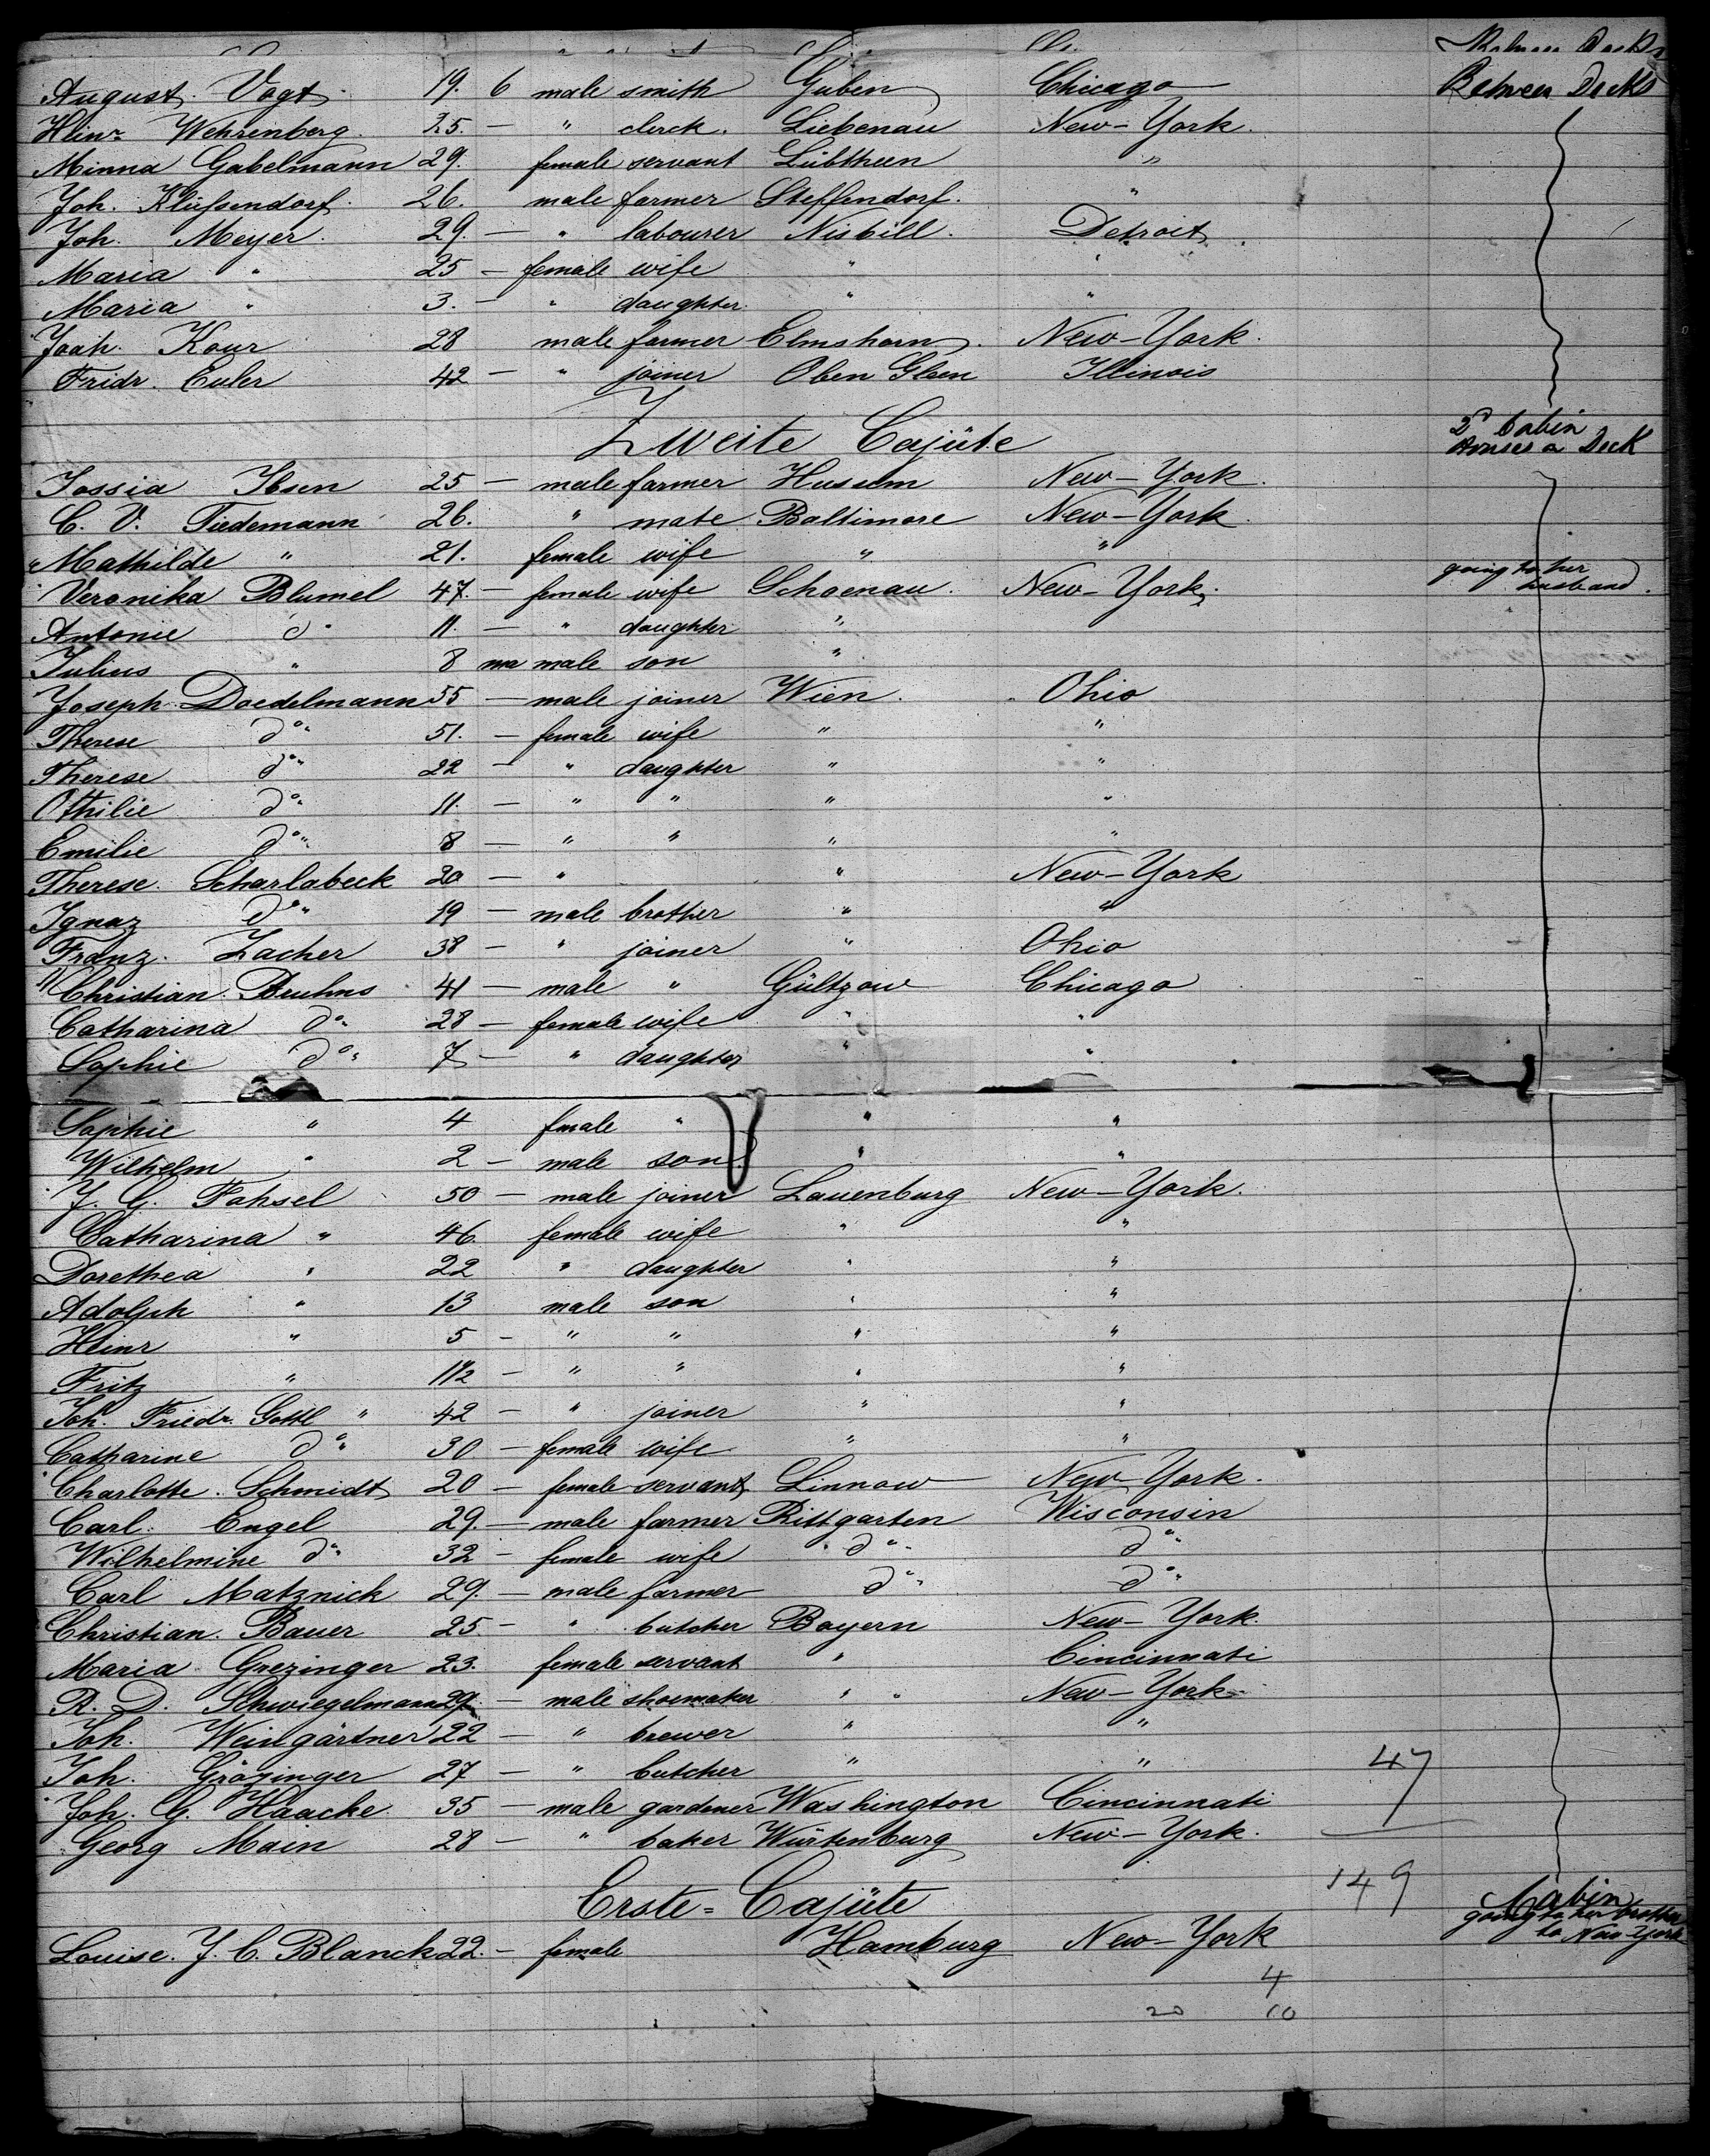 Between Decks
August Vogt 19. 6 male smith Guben Chicago Between Decks
Heinr Wehrenberg. 25. — " clerck. Liebenau New-York.
Minna Gabelmann 29. female servant Lübtheen "
Joh. Klüssendorf. 26. male farmer Steffendorf. "
Joh. Meyer. 29. — " labourer Nisbill. Detroit
Maria " 25 — female wife " "
Maria " 3. — " daughter " "
Joah. Kour 28 male farmer Elmshorn. New-York.
Fridr. Euler 42 — " joiner Oben Gleen Illinois
Zweite Cajüte 2d Cabin
Houses on Deck
Jossia Ibsen 25 — male farmer Husum New-York.
C. V. Tiedemann 26. " mate Baltimore New-York.
Mathilde " 21. female wife " "
Veronika Blumel 47. — female wife Schoenau. New-York. going to her husband.
Antonie do 11. — " daughter "
Julius " 8 ma male son "
Joseph Doedelmann 55 — male joiner Wien. Ohio
Therese do " 51. — female wife " "
Therese do " 22 — " daughter " "
Othilie do " 11. — " " " "
Emilie do " 8 — " " " "
Therese. Scharlabeck 20 — " " New-York
Ignaz do " 19 — male brother " "
Franz. Zacher 38 — " joiner " Ohio
Christian. Bruhns 41 — male " Gültzow Chicago
Catharina do " 28 — female wife " "
Sophie do " 7 — " daughter " "
Sophie " 4 female " " "
Wilhelm " 2 — male son " "
J. G. Fahsel 50 — male joiner Lauenburg New-York.
Catharina " 46. female wife " "
Dorethea " 22 " daughter " "
Adolph " 13 male son " "
Heinr " 5 — " " " "
Fritz " 1 1/2 — " " " "
Joh. Friedr. Gottl " 42 — " joiner " "
Catharine do " 30 — female wife " "
Charlotte. Schmidt 20 — female servant Linnow New-York.
Carl. Engel 29. — male farmer Rittgarten Wisconsin
Wilhelmine do " 32 — female wife do " do "
Carl Matznick 29. — male farmer do " do "
Christian. Bauer 25. — " butcher Bayern New-York.
Maria Grezinger 23. female servant " Cincinnati
R. D. Schwiegelmann 29. — male shoemaker " " New-York
Joh. Weingärtner 22 — " brewer " "
Joh. Grözinger 27 — " butcher " " 47
Joh. G. Haacke 35 — male gardener Washington Cincinnati
Georg Main 28 — " baker Würtenburg New-York.
149
Erste=Cajüte Cabin
Louise. J. C. Blanck 22. — female Hamburg New-York going to her brother to New York
4
20 10